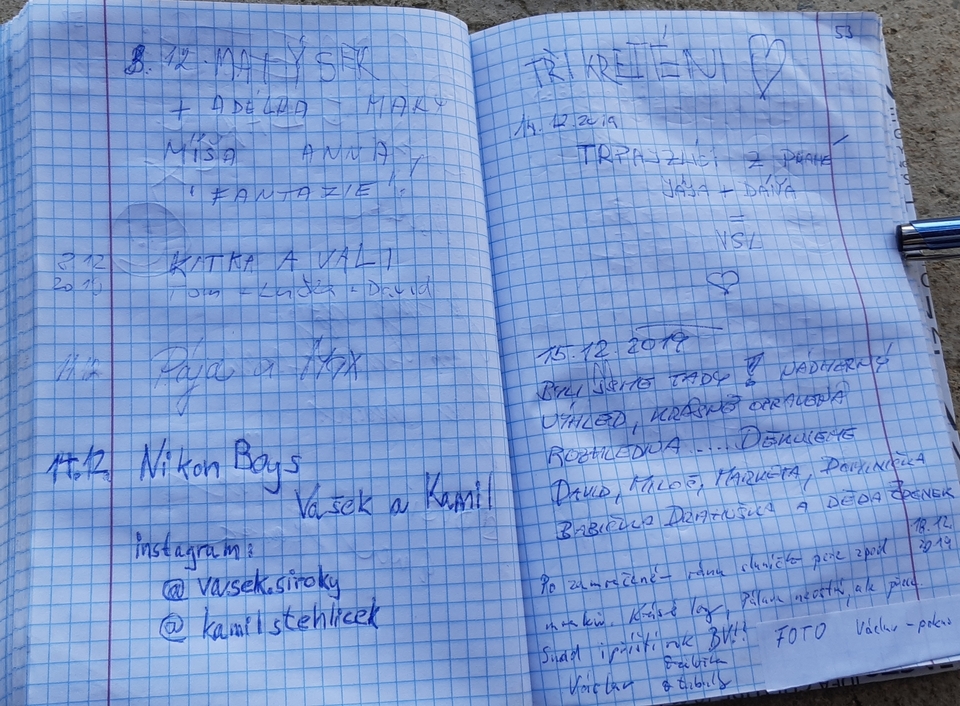 8.12. MALÝ SEK
+ ADÉLKA MAKY
MÍŠA ANNA,
"FANTAZIE"!
8.12 KITKA A VALI
2019 Tom - - David
Pája a
14.12. Nikon Boys
Vašek a Kamil
instagram:
@ vasek.siroky
@ kamilstehlicek
53
TŘI KRETÉNI
14.12.2019
TRPAJZLÍCI Z PRAHY
JÁJA + DÁŇA
VŠL
15.12.2019
BYLI JSME TADY NÁDHERNÝ
VÝHLED, KRÁSNĚ OPRAVENÁ
ROZHLEDNA .... DĚKUJEME
DAVID, MILOŠ, MARKÉTA, DOMINIČKA
BABIČKA DRAHUŠKA A DĚDA ZDENEK
18.12.
2019
Po zamračeném ránu sluníčko zpod
mraků. Krásné
Snad i příští rok
Václav
FOTO Václav